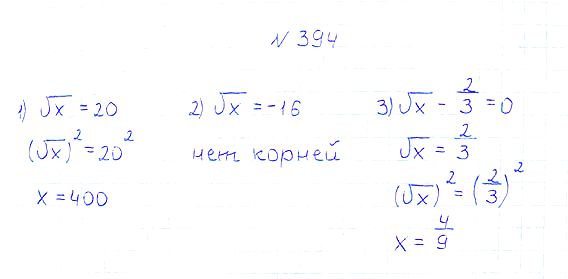 N 394
1) √x = 20
(√x)² = 20²
x = 400
2) √x = -16
нет корней
3) √x - 2/3 = 0
√x = 2/3
(√x)² = (2/3)²
x = 4/9